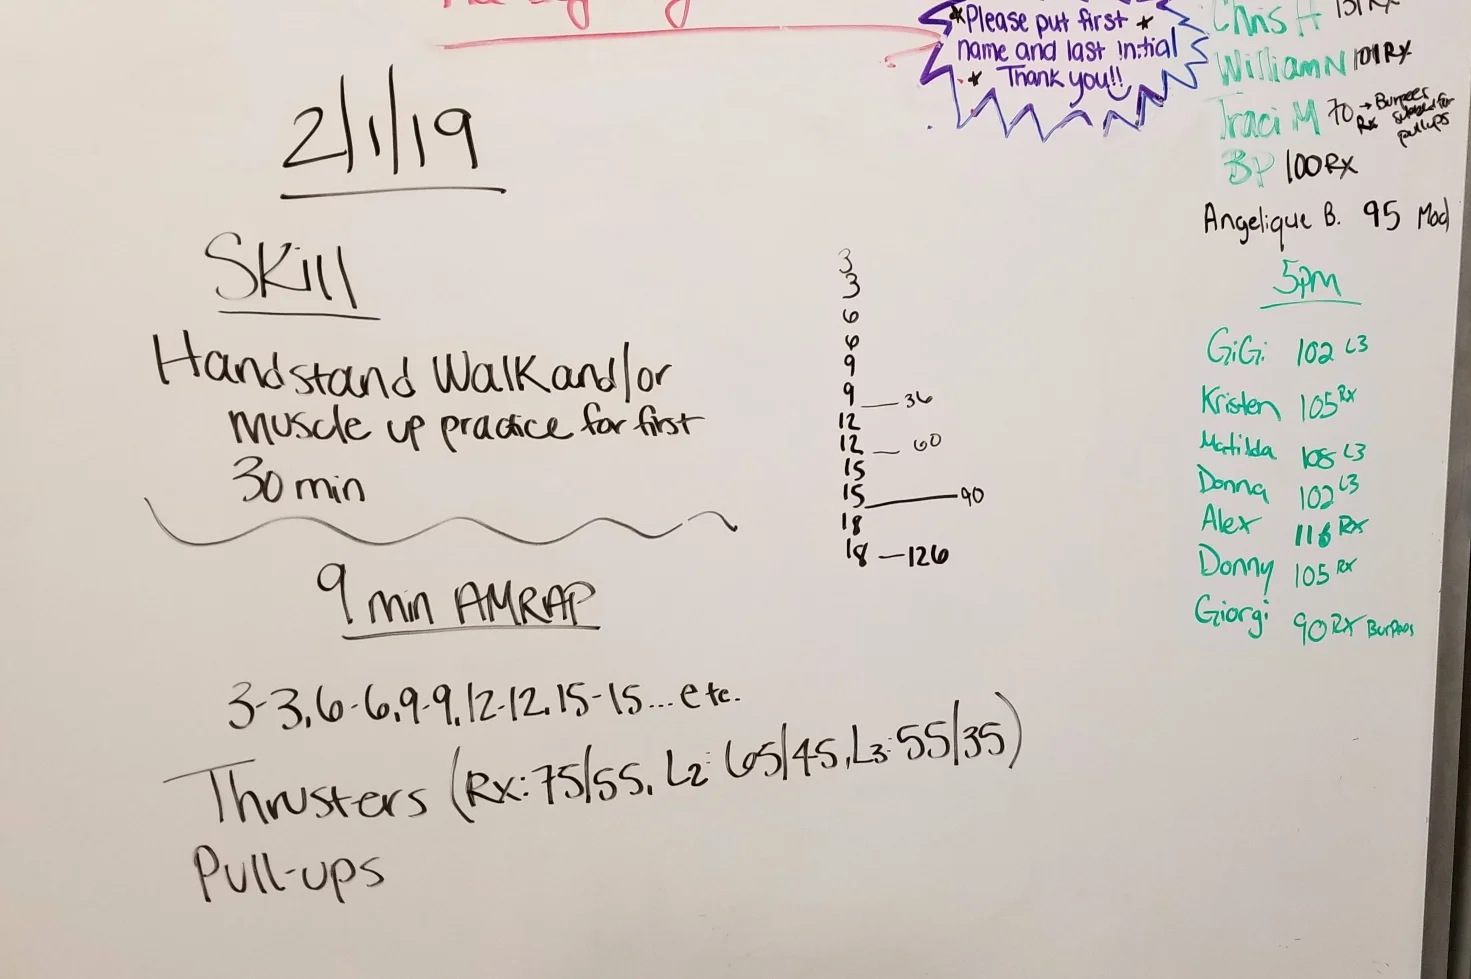 *Please put first *
name and last initial
* Thank you!!
2/1/19
Skill
Handstand Walk and/or
muscle up practice for first
30 min
9 min AMRAP
3-3, 6-6, 9-9, 12-12, 15-15... etc.
Thrusters (Rx: 75/55, L2: 65/45, L3: 55/35)
Pull-ups
3
3
6
6
9
9 — 36
12
12 — 60
15
15 — 90
18
18 — 126
Chris H 131 Rx
William N 101 Rx
Traci M 70 Rx → Burpees subbed for pullups
BP 100 Rx
Angelique B. 95 Mod
5pm
GiGi 102 L3
Kristen 105 Rx
Matilda 105 L3
Donna 102 L3
Alex Rx
Donny 105 Rx
Giorgi 90 Rx Burpees